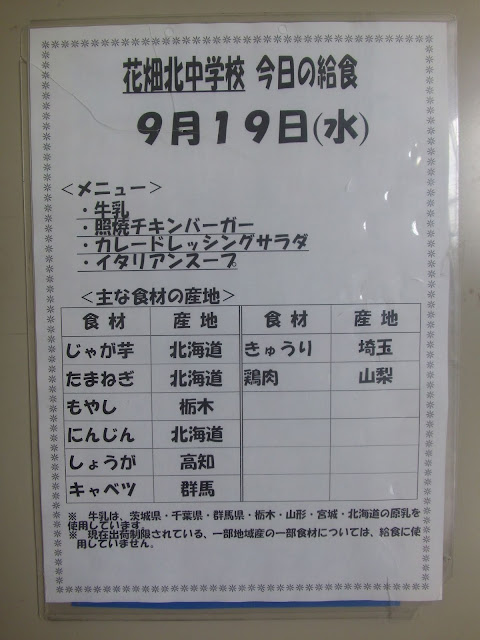 花畑北中学校 今日の給食
9月19日(水)
＜メニュー＞
・牛乳
・照焼チキンバーガー
・カレードレッシングサラダ
・イタリアンスープ
＜主な食材の産地＞
食材 産地 食材 産地
じゃが芋 北海道 きゅうり 埼玉
たまねぎ 北海道 鶏肉 山梨
もやし 栃木
にんじん 北海道
しょうが 高知
キャベツ 群馬
※ 牛乳は、茨城県・千葉県・群馬県・栃木・山形・宮城・北海道の原乳を
使用しています。
※ 現在出荷制限されている、一部地域産の一部食材については、給食に使
用していません。